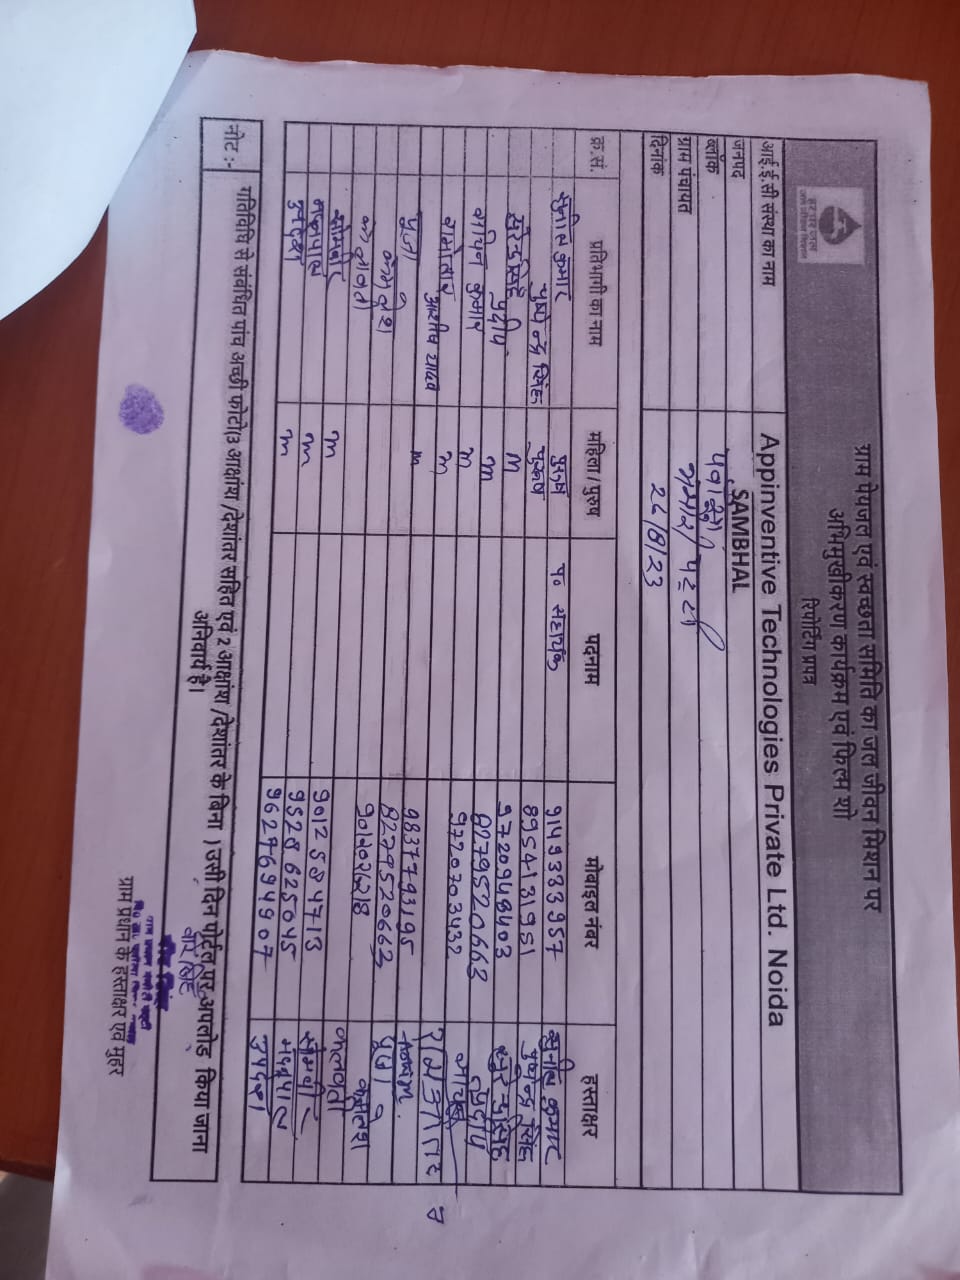 ग्राम पेयजल एवं स्वच्छता समिति का जल जीवन मिशन पर
अभिमुखीकरण कार्यक्रम एवं फिल्म शो
रिपोर्टिंग प्रपत्र
आई.ई.सी संस्था का नाम Appinventive Technologies Private Ltd. Noida
जनपद SAMBHAL
ब्लॉक
ग्राम पंचायत
दिनांक 26/8/23
क्र.सं. प्रतिभागी का नाम महिला / पुरुष पदनाम मोबाइल नंबर हस्ताक्षर
सुनील कुमार पुरुष पं० सहायक 9149333957 सुनील कुमार
पुष्पेन्द्र सिंह पुरुष 8954131951 पुष्पेन्द्र सिंह
सुरेन्द्र सिंह M 9720948403 सुरेन्द्र सिंह
प्रदीप m 8279520663 प्रदीप
कुमार m 9720703432
m
आशीष यादव m 9837793195
पूजा 8279520663 पूजा
कमलेश कमलेश
कलावती कलावती
सोमवीर m 9012584713 सोमवीर
m 9528625045
उपदेश m 9627694907 उपदेश
नोट :- गतिविधि से संबंधित पांच अच्छी फोटोउ आक्षांश /देशांतर सहित एवं 2 आक्षांश /देशांतर के बिना । उसी दिन पोर्टल पर अपलोड किया जाना
अनिवार्य है।
वीर सिंह
ग्राम प्रधान के हस्ताक्षर एवं मुहर